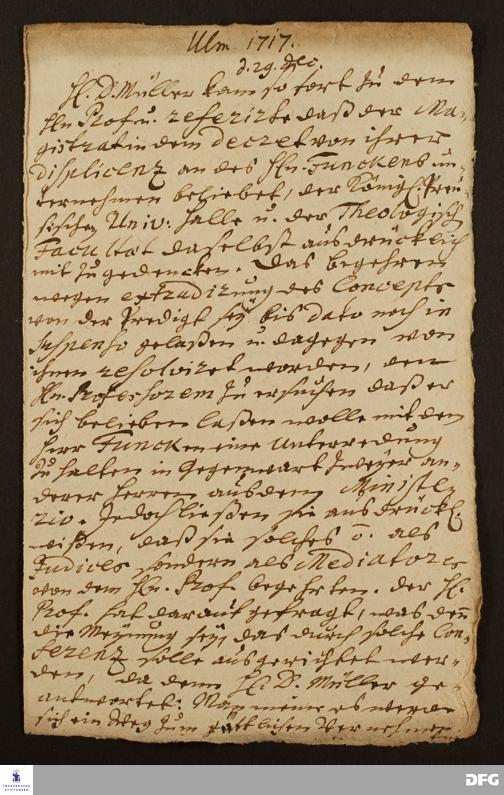 Ulm 1717.
d. 29. Dec.
H. D. Müller kam so fort zu dem
Hn Prof. u. referirte daß der Ma-
gistrat in dem Decret von ihrer
Displicenz an des Hn. Funckens un-
ternehmen beliebet, der Königl. Preu-
sischen Univ: Halle u. der Theologisch.
Facultät daselbst ausdrücklich
mit zu gedencken. Das begehren
wegen extradirung des Concepts
von der Predigt sey bis dato noch in
suspenso gelaßen u. dagegen von
ihnen resolviret worden, den
Hn. Professorem zu ersuchen daß er
sich belieben laßen wolle mit dem
Herr Funcken eine Unterredung
zu halten in Gegenwart zweyer an-
derer Herren aus dem Ministe-
rio. Jedoch ließen sie ausdrückl.
wißen, daß sie solches o. als
Judices sondern als Mediatores
von dem Hn. Prof. begehrten. Der H.
Prof. hat darauf gefragt, was deñ
die Meynung sey, das durch solche Con-
ferenz solle ausgerichtet wer-
den, da denn H. D. Müller ge-
antwortet: Man meine es werde
sich ein Weg zum gütlichen Vernehmen
FRANCKESCHE
STIFTUNGEN
DFG